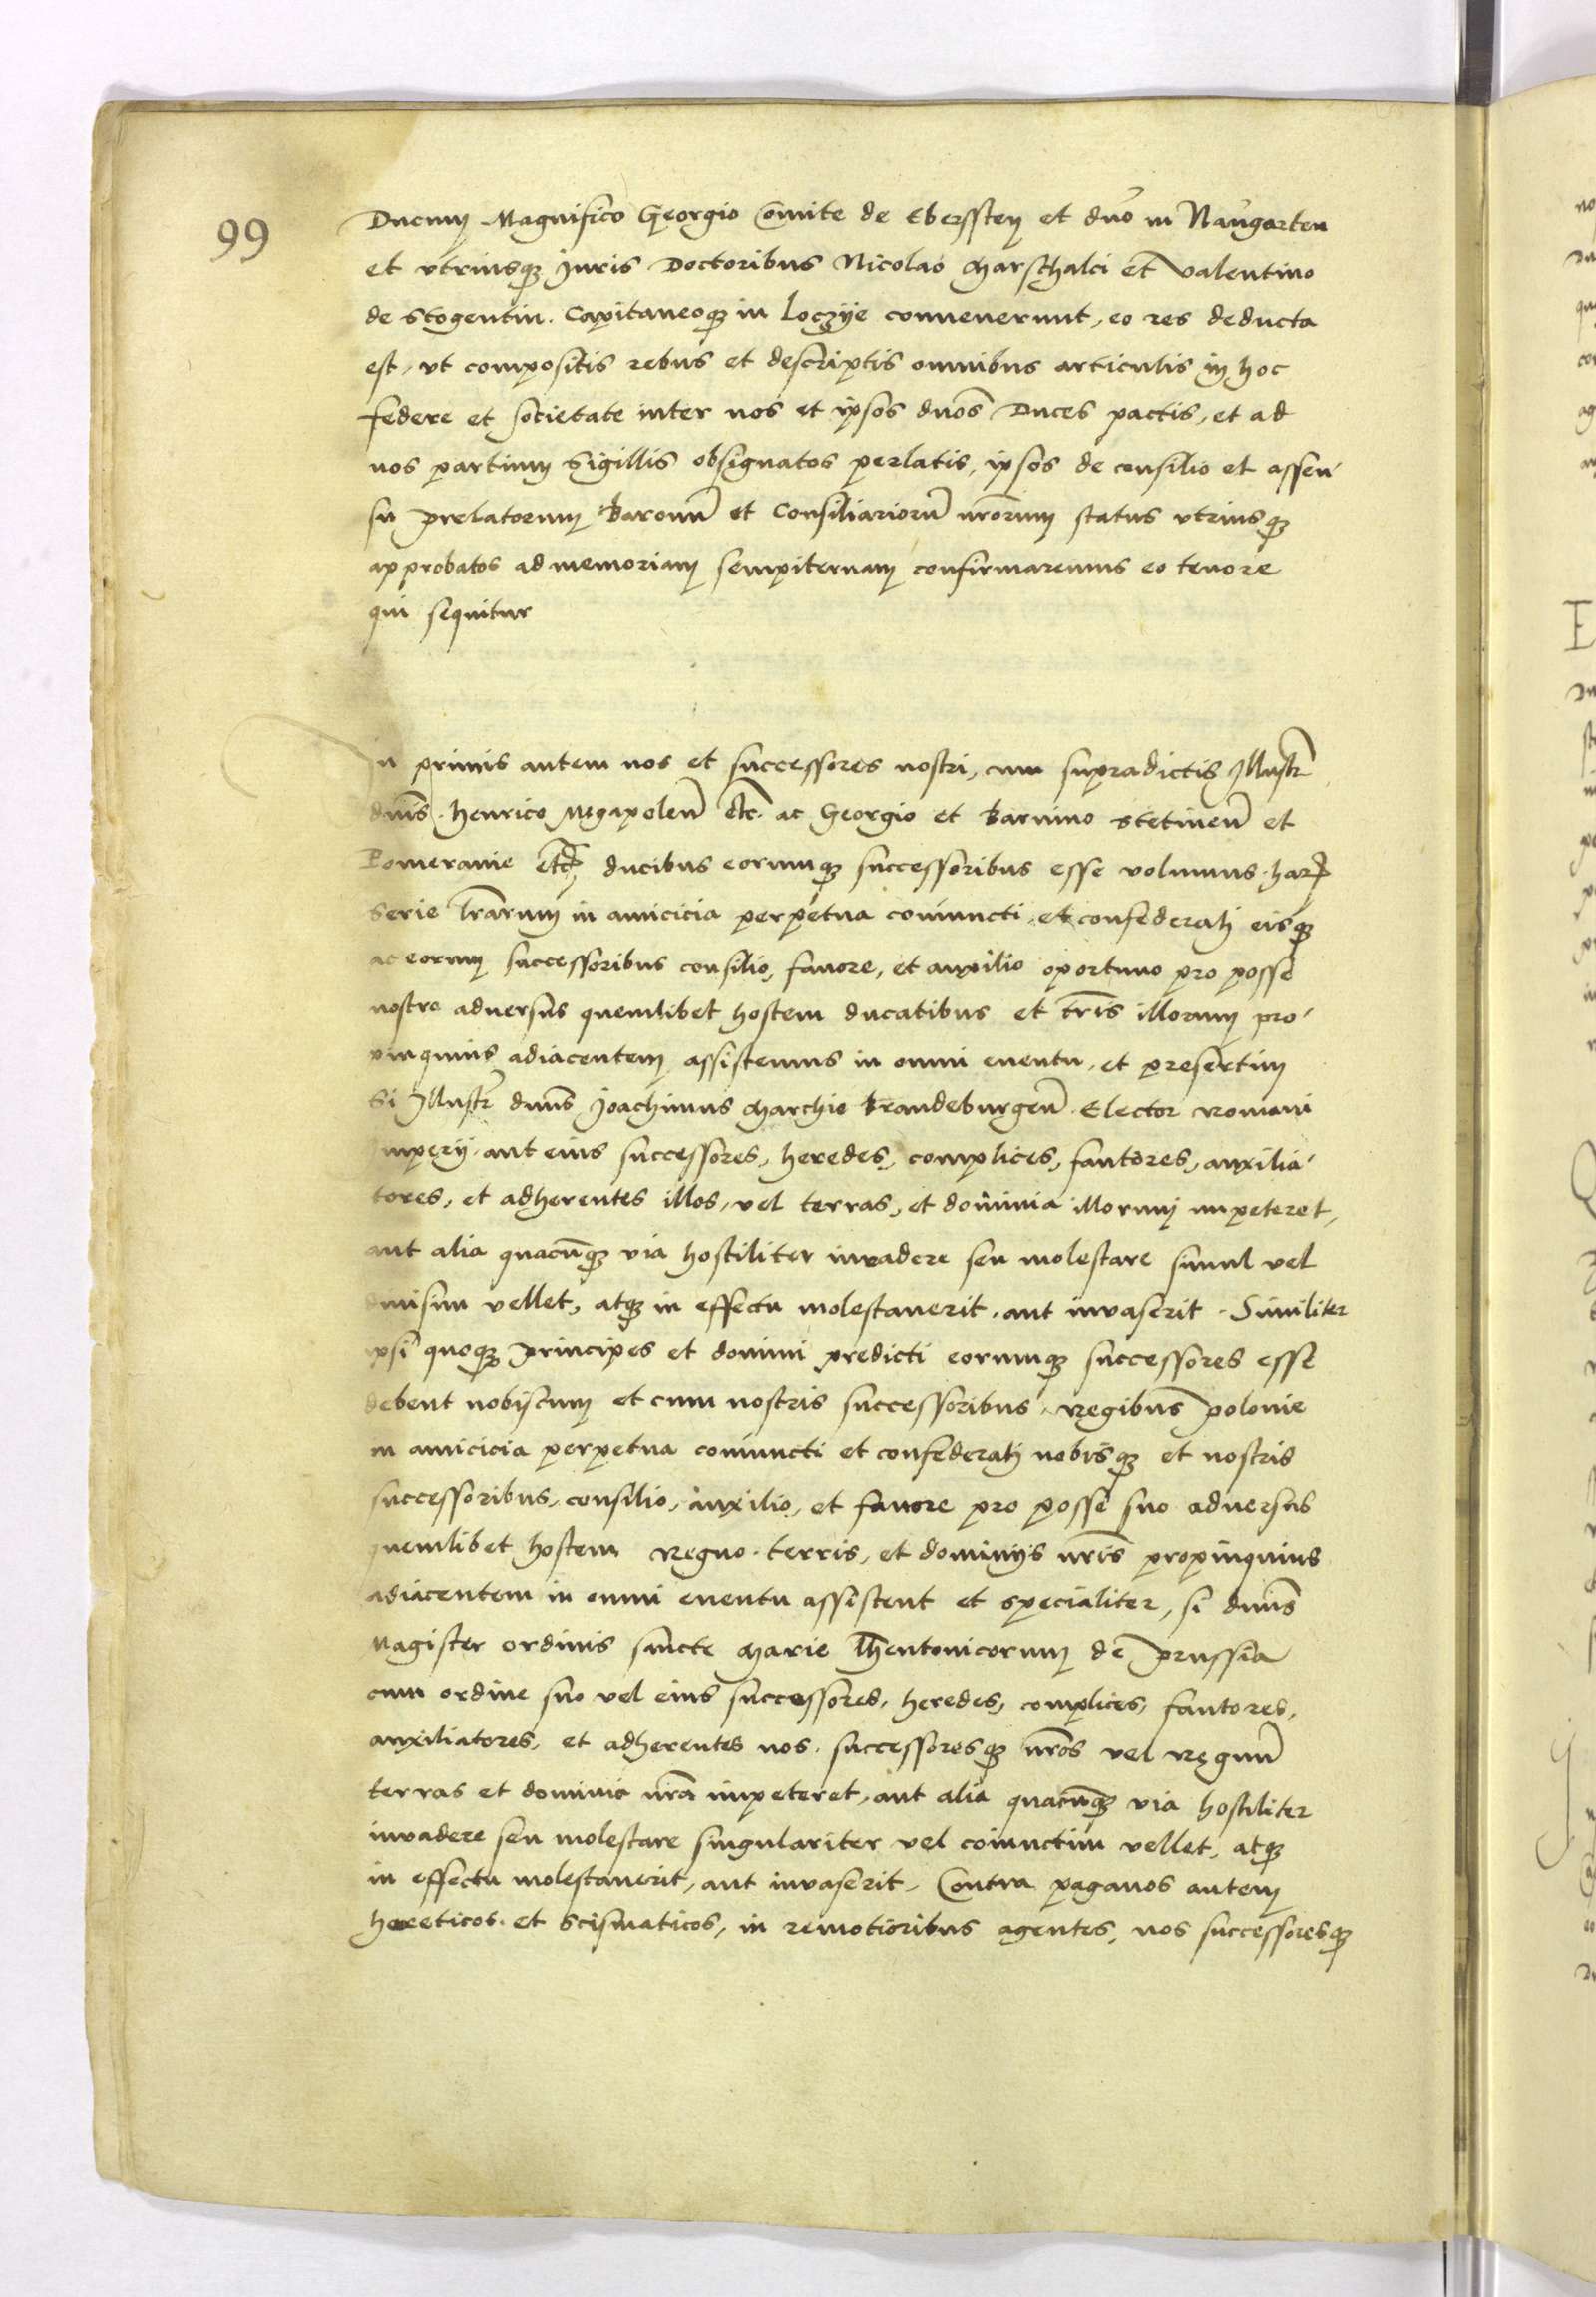 99
Ducum Magnifico Georgio Comite de Eberssteŋ et dno in Naugarten
et vtriusq; Juris Doctoribus Nicolao Marschalci et Valentino
de Stogentin. Capitaneoq; in Loczije conuenerunt, eo res deducta
est, vt compositis rebus et descriptis omnibus articulis in hoc
federe et societate inter nos et ipsos dnos Duces pactis, et ad
nos partium Sigillis obsignatos perlatis, ipsos de consilio et assen
su prelatorum Baronu et Consiliarioru nrorum status vtriusq;
approbatos ad memoriam sempiternam confirmaremus eo tenore
qui sequitur
In primis autem nos et successores nostri, cum supradictis Illustr
dnis. Henrico Megapolen etc. ac Georgio et Barnimo Stetinen et
Pomeranie etc ducibus eorumq; successoribus esse volumus. har
serie lrarum in amicicia perpetua coniuncti et confederati eisq;
ac eorum successoribus consilio, fauore, et auxilio oportuno pro posse
nostro aduersus quemlibet hostem ducatibus et tris illorum pro
pinquius adiacentem assistemus in omni euentu, et presertim
Si Illustr dnus Joachimus Marchio Brandeburgen. Elector Romani
Imperij. aut eius successores, heredes, complices, fautores, auxilia
tores, et adherentes illos, vel terras, et dominia illorum impeteret,
aut alia quacuq; via hostiliter inuadere seu molestare simul vel
diuisim vellet, atq; in effectu molestauerit, aut inuaserit. Similiter
ipsi quoq; principes et domini predicti eorumq; successores esse
debent nobiscum et cum nostris successoribus Regibus polonie
in amicicia perpetua coniuncti et confederati nobisq; et nostris
successoribus, consilio, auxilio, et fauore pro posse suo aduersus
quemlibet hostem Regno. terris, et dominijs nris propinquius
adiacentem in omni euentu assistent et specialiter, si dnus
Magister ordinis sancte Marie Theutonicorum de prussia
cum ordine suo vel eius successores, heredes, complices, fautores,
auxiliatores, et adherentes nos, successoresq; nros vel Regnu
terras et dominia nra impeteret, aut alia quacuq; via hostiliter
inuadere seu molestare singulariter vel coniunctim vellet, atq;
in effectu molestauerit, aut inuaserit, Contra paganos autem
hereticos. et Scismaticos, in remotioribus agentes, nos successoresq;